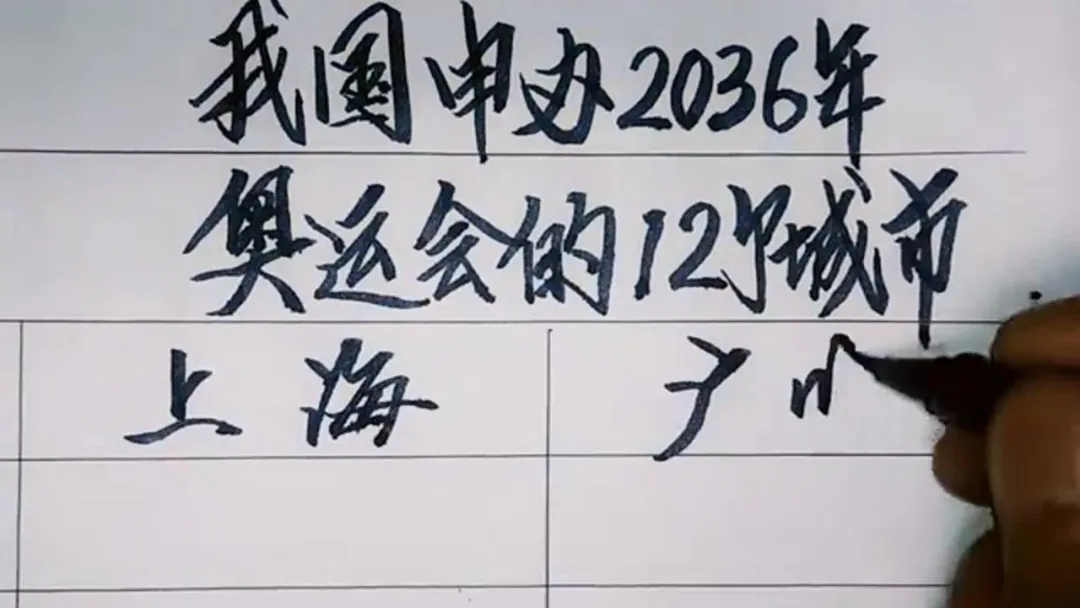 我国申办2036年
奥运会的12个城市
上海 广